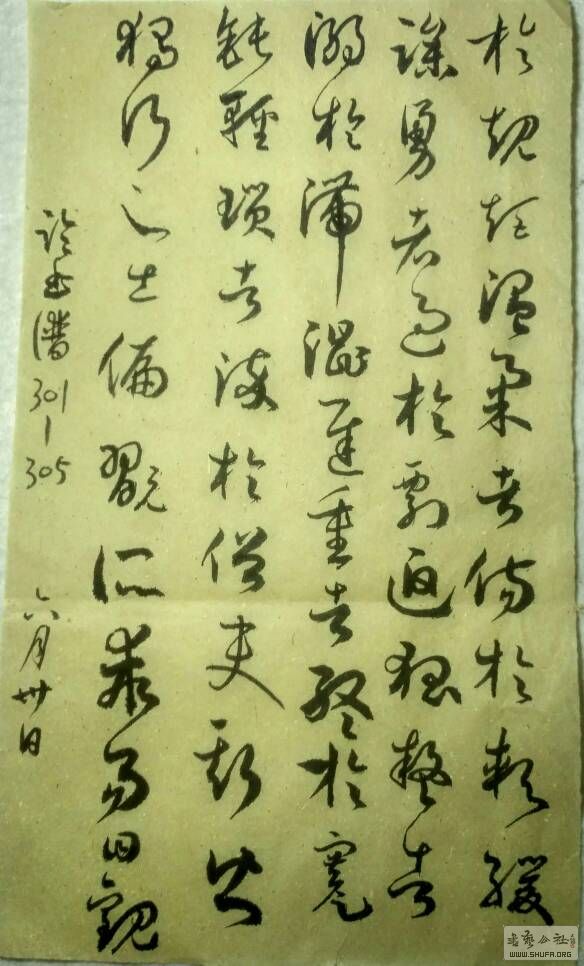 於規矩温柔者傷於軟緩
躁勇者過於剽迫狐疑者
溺於滯澀遲重者終於蹇
鈍輕瑣者淬於俗吏斯皆
獨行之士偏翫所乖易曰觀
書譜301-305
六月卅日
書藝公社
WWW.SHUFA.ORG